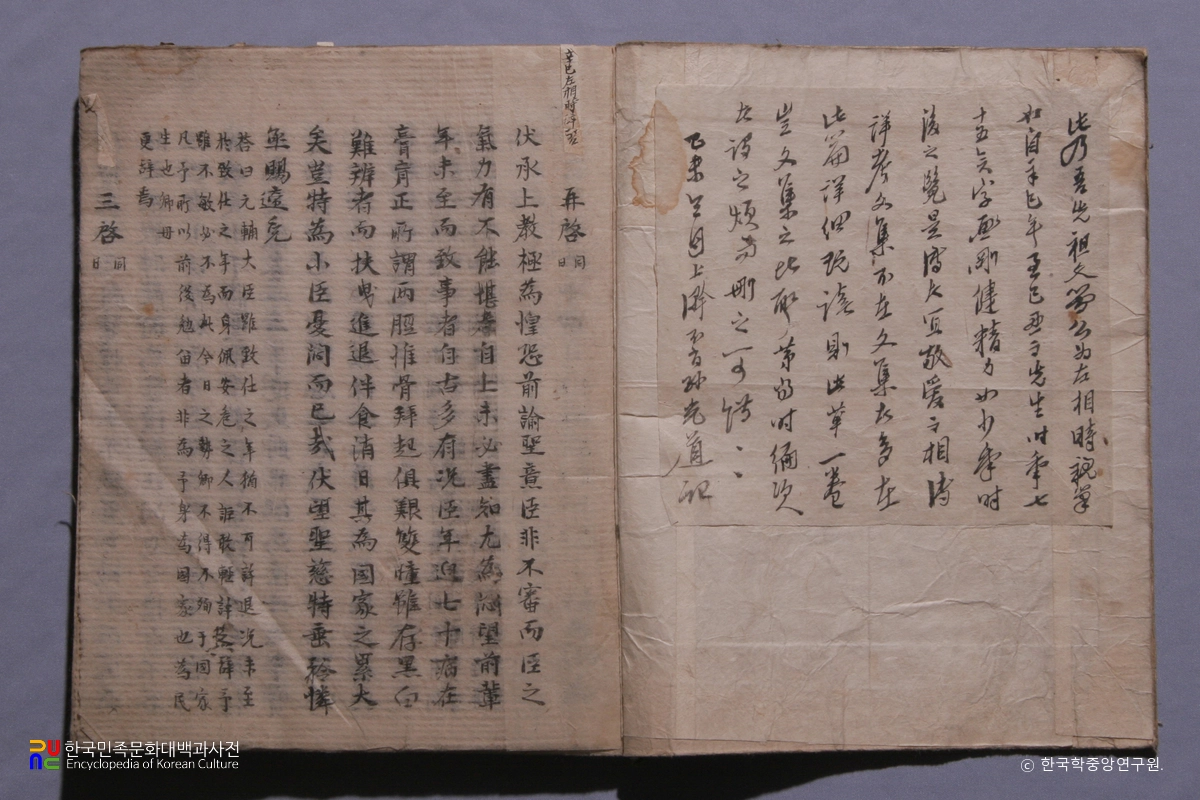 此乃吾先祖文公為左相時親筆
如自辛巳年至己亥先生時年七
十五矣字畫剛健精力如少年時
後之覽是者宜敬愛相
詳考文集不在文集者多在
此篇詳細玩讀則此草一卷
豈文集之比耶第時編次
者謂之煩而刪之可惜、、
乙未上澣不肖孫光道記
辛巳左相時
再啓 同日
伏承上教極為惶恐前諭聖意臣非不審而臣之
氣力有不能堪者自上未必盡知尤為悶望前輩
年未至而致事者自古多有況臣年迫七十病在
膏肓正所謂兩脛惟骨拜起俱艱雙瞳雖存黑白
難辨者而扶曳進退伴食消日其為國家之累大
矣豈特為小臣憂悶而已哉伏望聖慈特垂矜憐
亟賜遞免
答曰元輔大臣雖致仕之年猶不可辭退況未至
於致仕之年而身佩安危之人詎敢輕辭莫辭予
雖不敏必不為然今日之勢卿不得不殉于國家
凡予所以前後勉留者非為予身為國家也為民
生也卿毋
更辭焉
三啓 同日
한국민족문화대백과사전
Encyclopedia of Korean Culture
© 한국학중앙연구원.